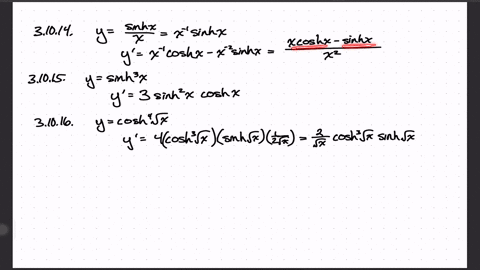 3.10.14. y = sinhx/x = x⁻¹sinhx
y' = x⁻¹coshx - x⁻²sinhx = (xcoshx - sinhx)/x²
3.10.15. y = sinh³x
y' = 3 sinh²x coshx
3.10.16. y = cosh⁴√x
y' = 4(cosh³√x)(sinh√x)(1/(2√x)) = 2/√x cosh³√x sinh√x